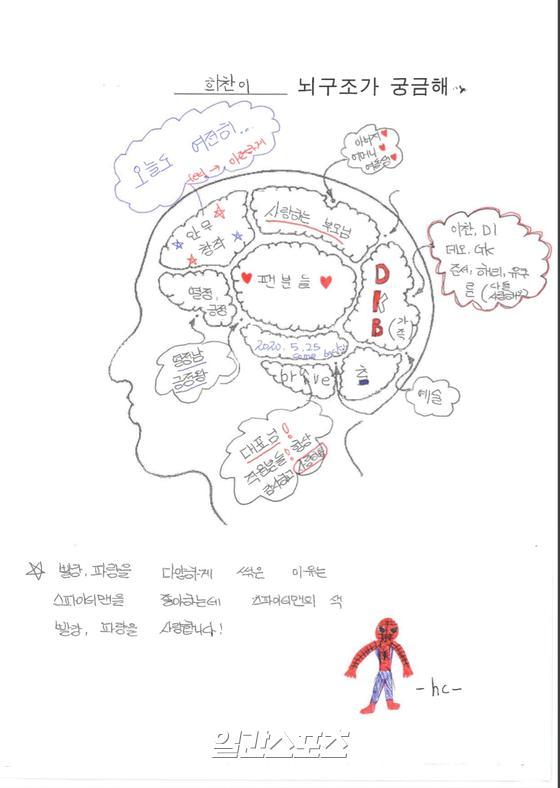 희찬이 뇌구조가 궁금해
오늘도 여전히...
아버지♥
어머니♥
여동생♥
안무
창작
사랑하는 부모님
이찬, D1
테오, GK
준서, 해리준, 유쿠
를 (다들 사랑해요?)
열정,
긍정
♥ 팬분들 ♥
DKB
(가족)
2020. 5. 25
come back!
brave
춤
열정남
긍정왕
예술
대표님!
직원분들! 항상
감사하고 사랑해요
☆ 빨강, 파랑을 다양하게 섞은 이유는
스파이더맨을 좋아하는데 스파이더맨의 색
빨강, 파랑을 사랑합니다!
-hc-
일간스포츠